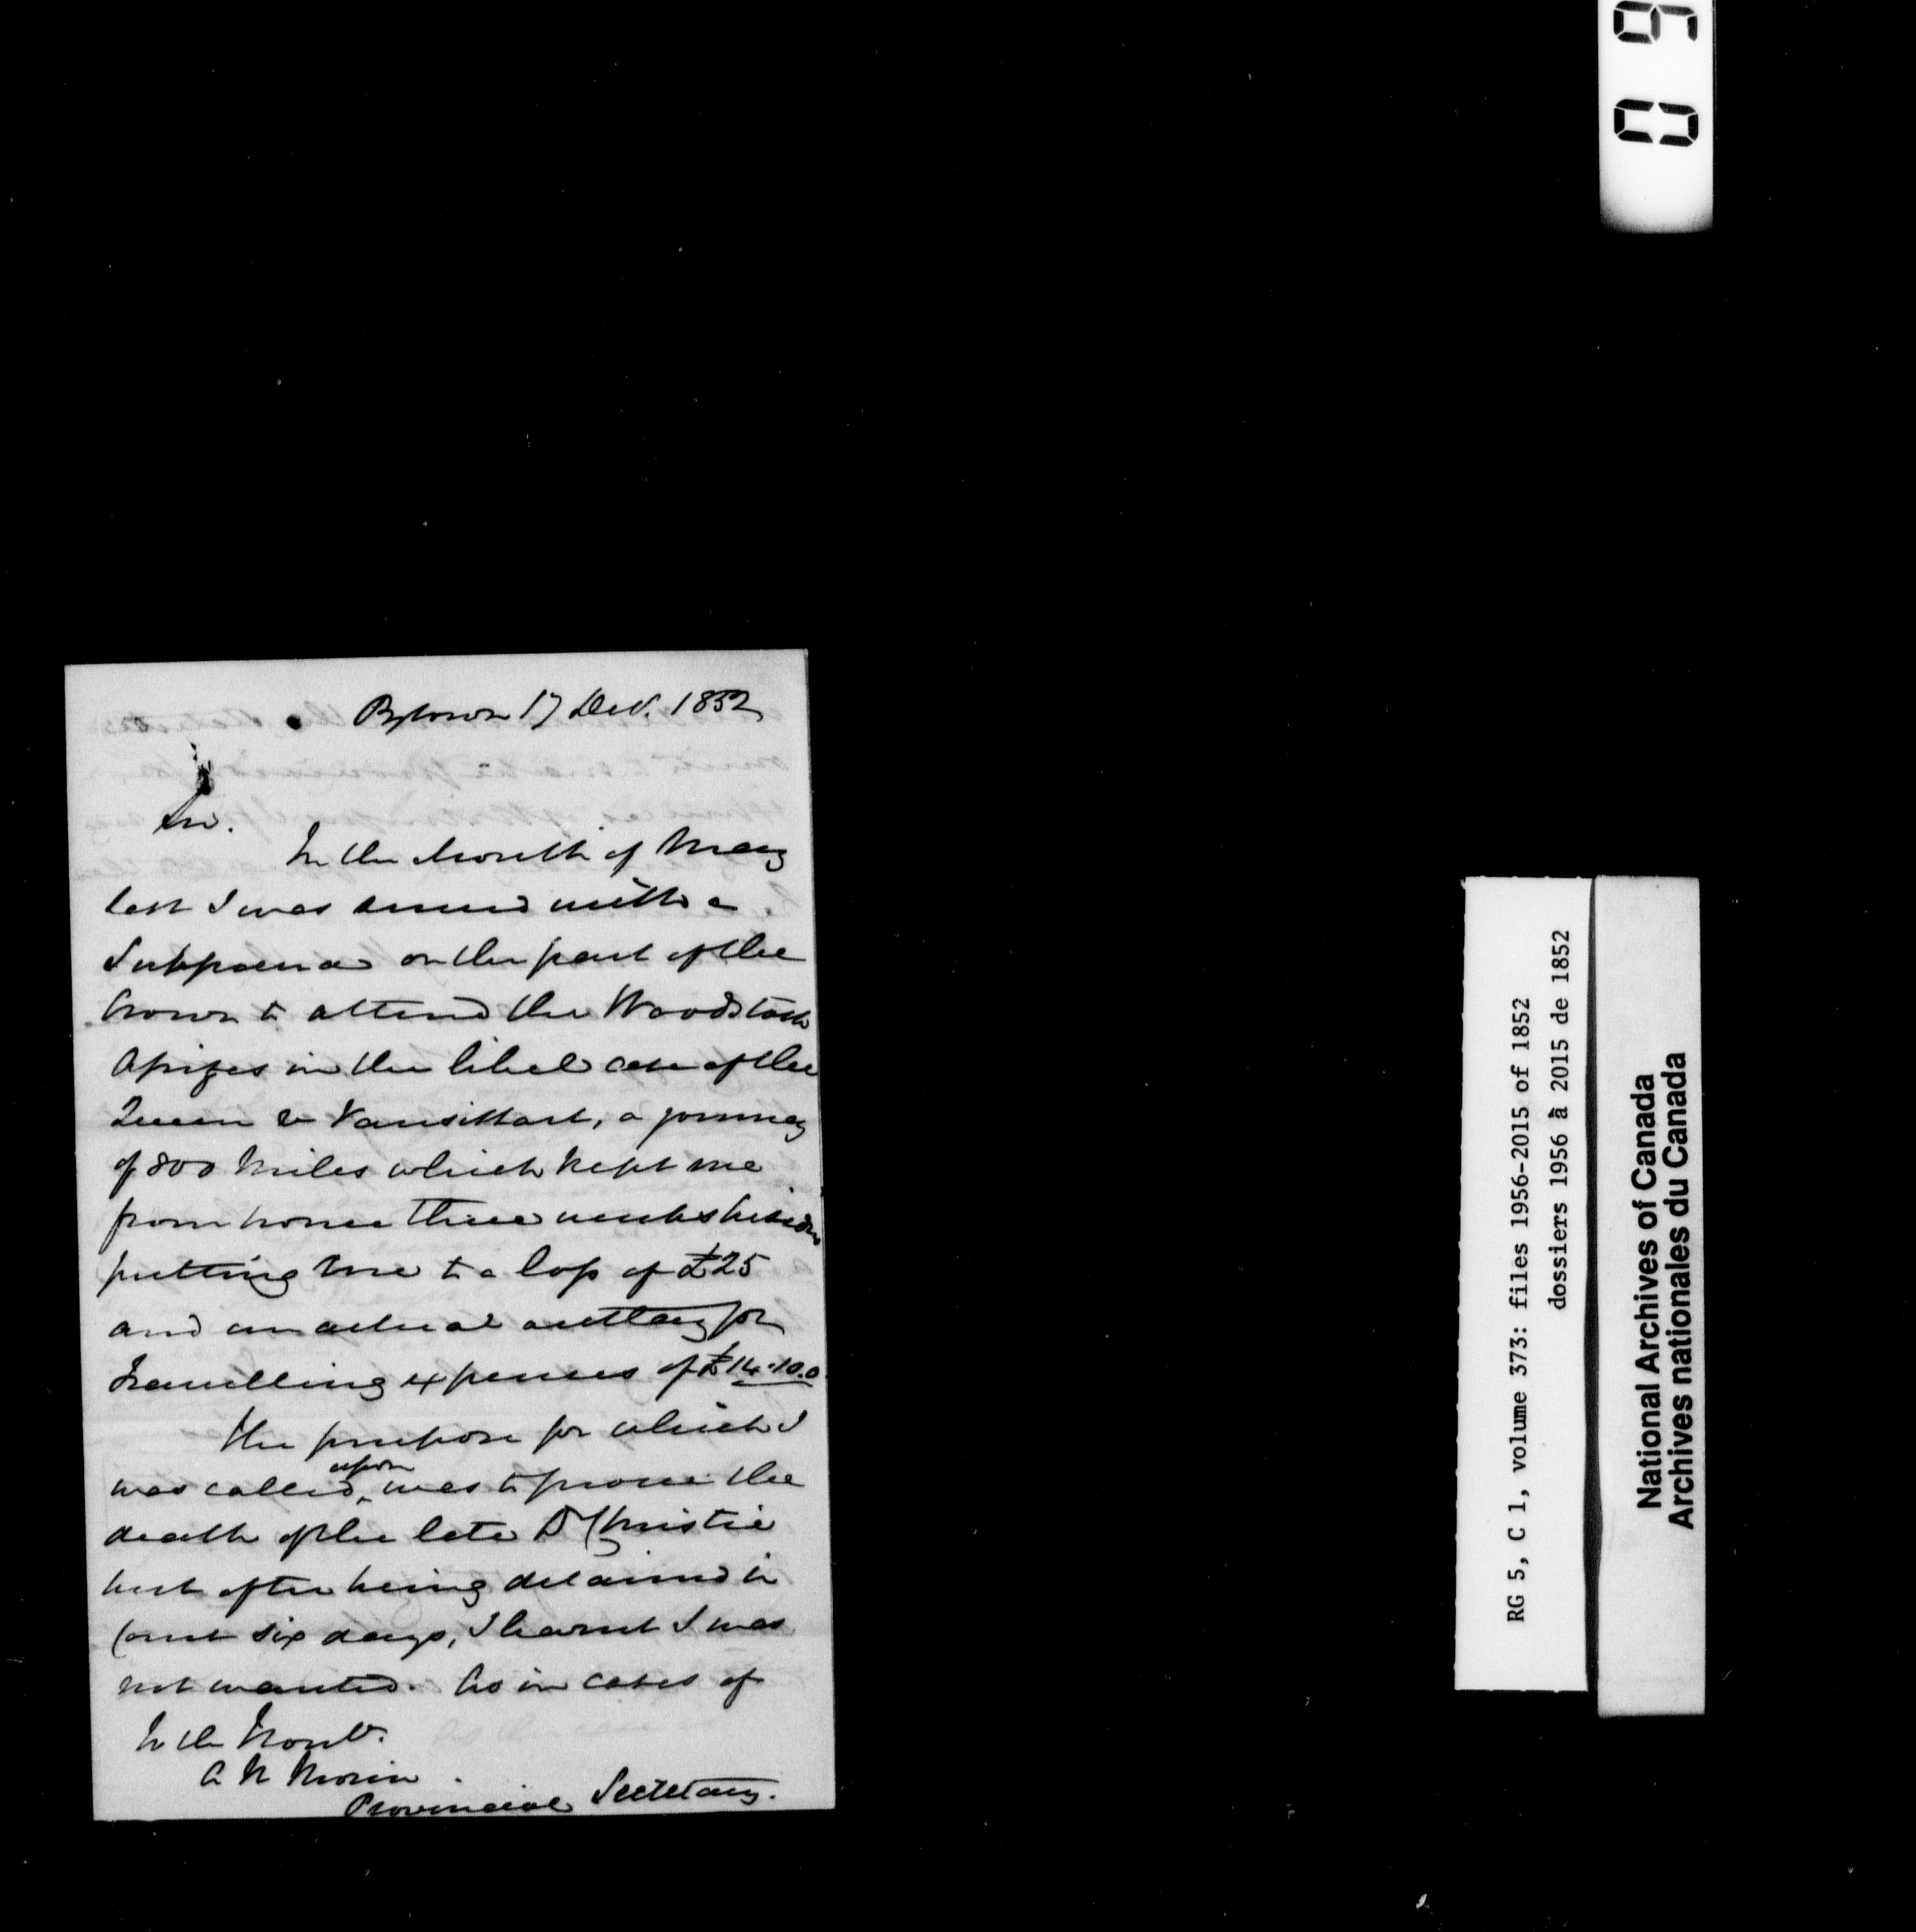 Bytown 17 Dec. 1852
Sir.
In the Month of May
last I was served with a
Subpoena on the part of the
Crown to attend the Woodstock
Assizes in the libel case of the
Queen v Vansittart, a journey
of 800 Miles which kept me
from home three weeks besides
putting me to a loss of £25
and an actual outlay for
travelling expenses of £14.10.0
The purpose for which I
was called upon was to prove the
death of the late Dr Christie
but after being detained in
Court six days, I learnt I was
not wanted. As in cases of
To the Honble.
A N Morin
Provincial Secretary.
09
RG 5, C 1, volume 373: files 1956-2015 of 1852
dossiers 1956 à 2015 de 1852
National Archives of Canada
Archives nationales du Canada